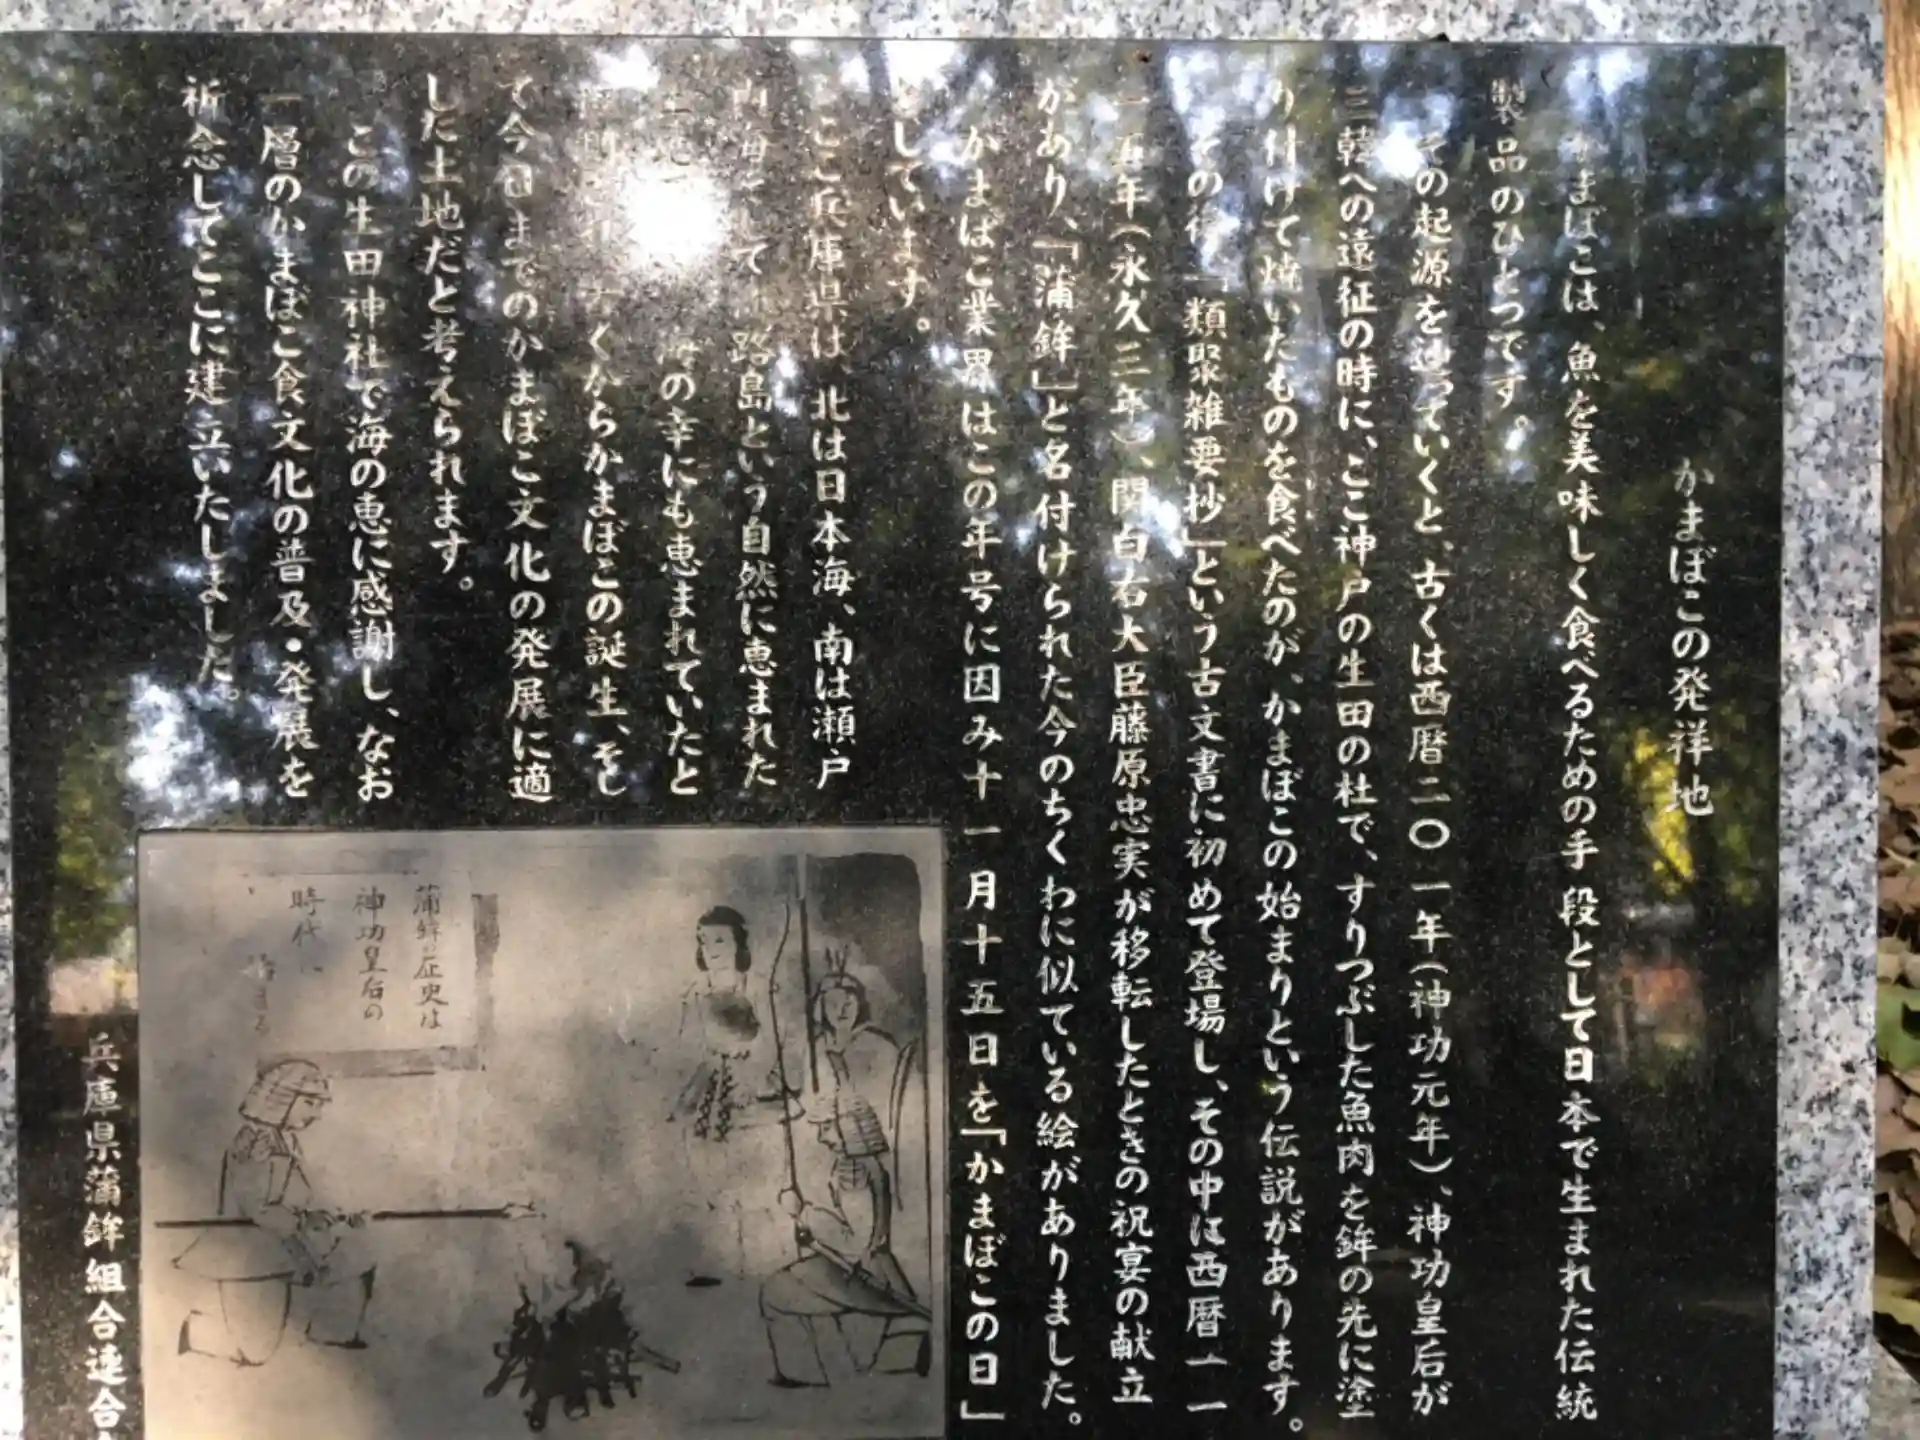 かまぼこの発祥地
かまぼこは、魚を美味しく食べるための手段として日本で生まれた伝統
製品のひとつです。
その起源を辿っていくと、古くは西暦二〇一年(神功元年)、神功皇后が
三韓への遠征の時に、ここ神戸の生田の杜で、すりつぶした魚肉を鉾の先に塗
り付けて焼いたものを食べたのが、かまぼこの始まりという伝説があります。
その後「類聚雑要抄」という古文書に初めて登場し、その中に西暦一一
一五年(永久三年)、関白右大臣藤原忠実が移転したときの祝宴の献立
があり、「蒲鉾」と名付けられた今のちくわに似ている絵がありました。
かまぼこ業界はこの年号に因み十一月十五日を「かまぼこの日」
としています。
ここ兵庫県は、北は日本海、南は瀬戸
内海そして 路島という自然に恵まれた
の幸にも恵まれていたと
くからかまぼこの誕生、そし
て今日までのかまぼこ文化の発展に適
した土地だと考えられます。
この生田神社で海の恵に感謝し、なお
一層のかまぼこ食文化の普及・発展を
祈念してここに建立いたしました。
兵庫県蒲鉾組合連合
蒲鉾の歴史は
神功皇后の
時代に
始まる